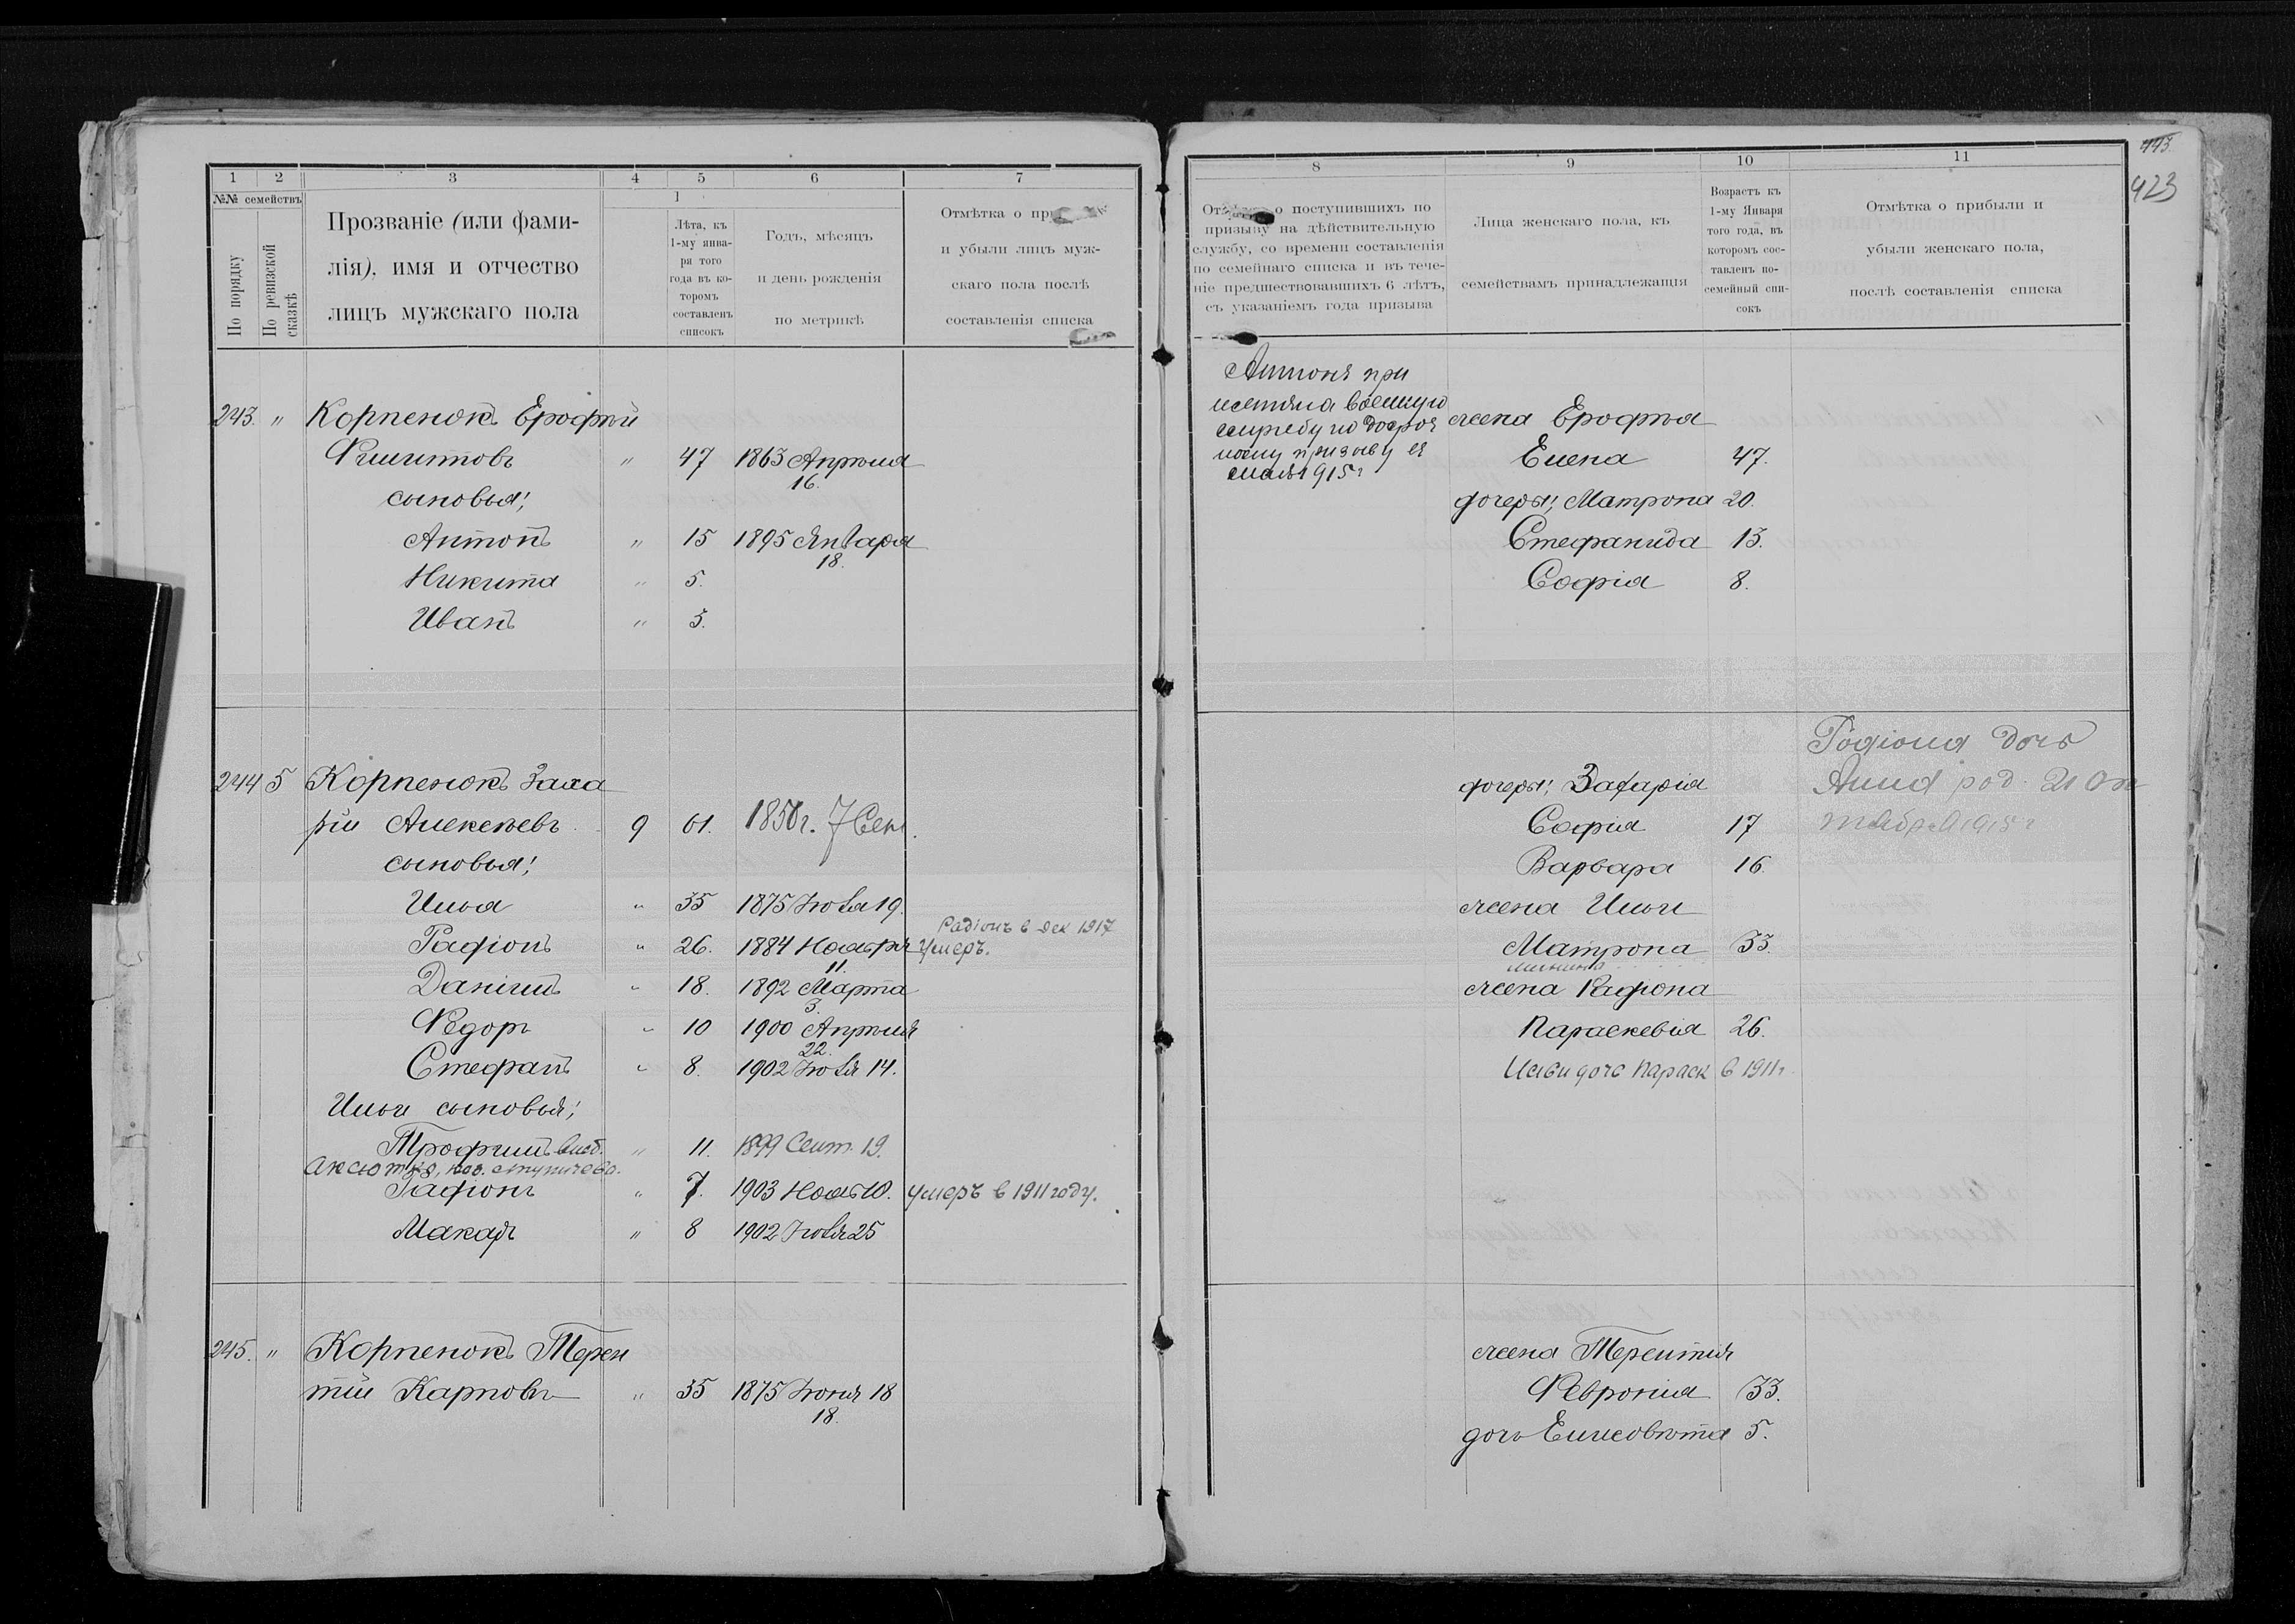 1 2 3 4 5 6 7
№№ семействъ
По порядку
По ревизской сказкѣ
Прозваніе (или фами-
лія), имя и отчество
лицъ мужскаго пола
1
Лѣта, къ
1-му янва-
ря того
года въ ко-
торомъ
составленъ
списокъ
Годъ, мѣсяцъ
и день рожденія
по метрикѣ
Отмѣтка о
и убыли лицъ муж-
скаго пола послѣ
составленія списка
243. " Корпенюкъ Ерофѣй
Филиповъ " 47 1863 Апрѣля
16.
сыновья:
Антонъ " 15 1895 Января
18.
Никита " 5.
Иванъ " 3.
244 5 Корпенюкъ Заха
рій Алексѣевъ 9 61. 1850 г. 7 Сен.
сыновья:
Илья " 35 1875 Іюля 19.
Радіонъ в дек 1917
Радіонъ " 26. 1884 Ноября умеръ.
11.
Даніилъ " 18. 1892 Марта
3.
Ѳедоръ " 10 1900 Апрѣля
22.
Стефанъ " 8. 1902 Іюля 14.
Ильи сыновья:
Трофимъ " 11. 1899 Сент. 19.
Радіонъ " 7. 1903 Нояб 10. умеръ в 1911 году.
Макаръ " 8 1902 Іюля 25
245. " Корпенюкъ Терен
тій Карповъ " 35 1875 Іюня 18
18.
443
423
8 9 10 11
о поступившихъ по
призыву на дѣйствительную
службу, со времени составленія
по семейнаго списка и въ тече-
ніе предшествовавшихъ 6 лѣтъ,
съ указаніемъ года призыва
Лица женскаго пола, къ
семействамъ принадлежащія
Возрастъ къ
1-му Января
того года, въ
которомъ сос-
тавленъ по-
семейный спи-
сокъ
Отмѣтка о прибыли и
убыли женскаго пола,
послѣ составленія списка
Антонъ при
военную
службу по досроч
ному призыву
1915 г
жена Ерофѣя
Елена 47.
дочеры: Матрона 20.
Стефанида 13.
Софія 8.
Радіона дочь
Анна род. 21 Ок
тября 1915 г
дочеры: Захарія
Софія 17
Варвара 16.
жена Ильи
Матрона 33.
жена Радіона
Параскевія 26.
Ильи дочь Параск в 1911 г.
жена Терентія
Февронія 33.
дочь Елисовета 5.